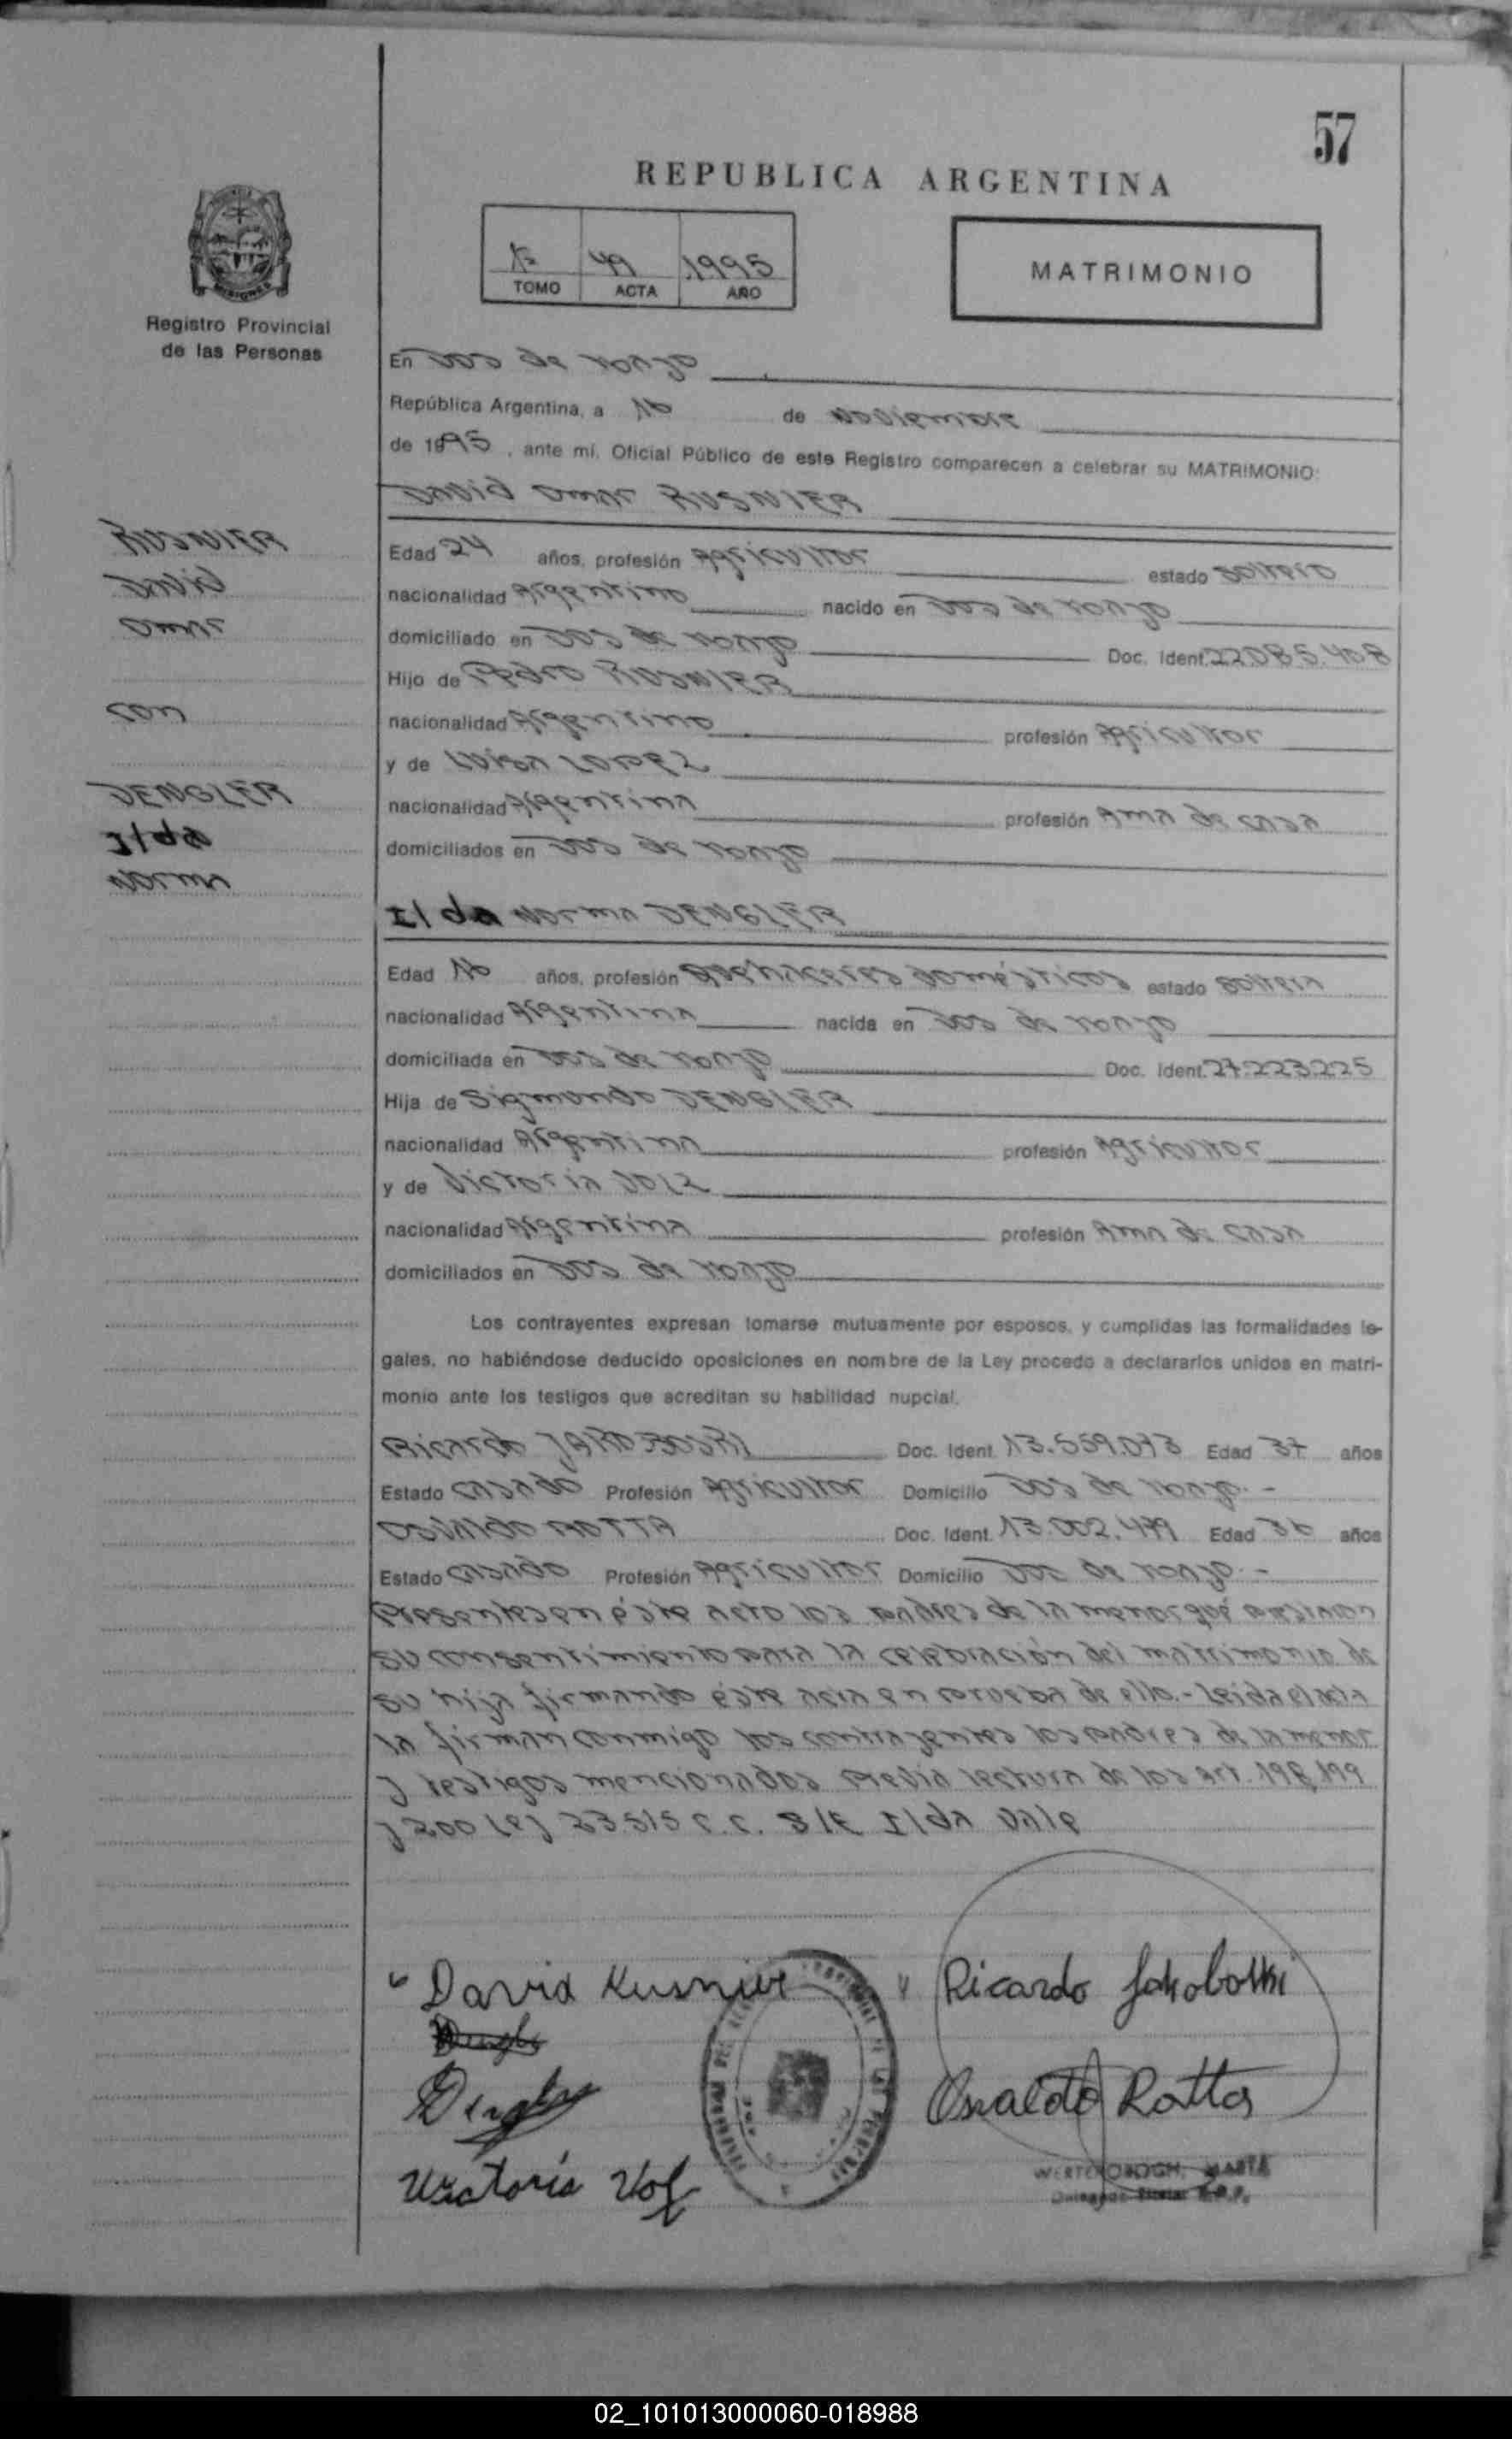 57
REPUBLICA ARGENTINA
49 1995
TOMO ACTA AÑO
MATRIMONIO
MISIONES
Registro Provincial
de las Personas
En Dos de Mayo
República Argentina, a 16 de Noviembre
de 1995, ante mí, Oficial Público de este Registro comparecen a celebrar su MATRIMONIO:
David Omar KUSNIER
KUSNIER
David
Omar
con
DENGLER
Ilda
Norma
Edad 24 años, profesión Agricultor estado Soltero
nacionalidad Argentino nacido en Dos de Mayo
domiciliado en Dos de Mayo Doc. Ident. 22.085.408
Hijo de Pedro KUSNIER
nacionalidad Argentino profesión Agricultor
y de Luisa LOPEZ
nacionalidad Argentina profesión Ama de casa
domiciliados en Dos de Mayo
Ilda Norma DENGLER
Edad 16 años, profesión Quehaceres domésticos estado Soltera
nacionalidad Argentina nacida en Dos de Mayo
domiciliada en Dos de Mayo Doc. Ident. 27.223.225
Hija de Sigmundo DENGLER
nacionalidad Argentina profesión Agricultor
y de Victoria VOLZ
nacionalidad Argentina profesión Ama de casa
domiciliados en Dos de Mayo
Los contrayentes expresan tomarse mutuamente por esposos, y cumplidas las formalidades le-
gales, no habiéndose deducido oposiciones en nombre de la Ley procedo a declararlos unidos en matri-
monio ante los testigos que acreditan su habilidad nupcial.
Ricardo JAKOBOSKI Doc. Ident. 13.559.073 Edad 37 años
Estado casado Profesión Agricultor Domicilio Dos de Mayo.-
Osvaldo ROTTA Doc. Ident. 13.002.479 Edad 36 años
Estado casado Profesión Agricultor Domicilio Dos de Mayo.-
Presentes en éste acto los padres de la menor qué prestaron
su consentimiento para la celebración del matrimonio de
su hija firmando éste acta en prueba de ello.- Leida el acta
la firman conmigo los contrayentes los padres de la menor
y testigos mencionados previa lectura de los art. 198, 199
y 200 Ley 23.515 C.C. S/E Ilda Vale
David Kusnier Ricardo Jakoboski
Dengler Osvaldo Rotta
Victoria Volz
MARTA
02_101013000060-018988